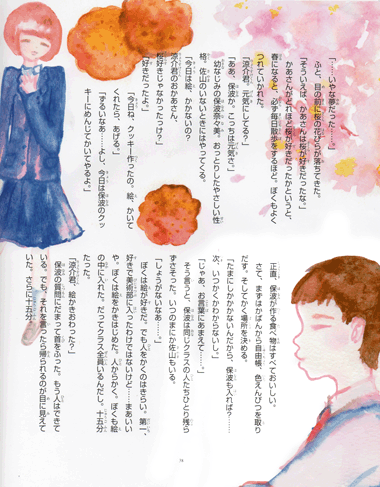 「……いやな夢だった……。」
ふと、目の前に桜の花びらが落ちてきた。
「そういえば、かあさんは桜が好きだったな。」
かあさんがどれほど桜が好きだったかというと、
春になると、必ず毎日散歩をするほど。ぼくもよく
つれていかれた。
「涼介君、元気にしてる？」
「ああ、保波か。こっちは元気さ。」
幼なじみの保波奈々美。おっとりしたやさしい性
格。佐山のいないときにはやってくる。
「今日は絵、かかないの？」
「涼介君のおかあさん、
桜好きじゃなかったっけ？」
「好きだったよ。」
「今日ね、クッキー作ったの。絵、かいて
くれたら、あげる。」
「ずるいなあ……よし、今日は保波のクッ
キーにめんじてかいてやるよ。」
正直、保波が作る食べ物はすべておいしい。
さて、まずはかばんから自由帳、色えんぴつを取り
だす。そしてかく場所を決める。
「たまにしかかかないんだから、保波も入れば？……
次、いつかくかわからないし。」
「じゃあ、お言葉にあまえて……。」
そう言うと、保波は同じクラスの人たちひとり残ら
ずさそった。いつのまにか佐山もいる。
「しょうがないなあ……。」
ぼくは絵が好きだ。でも人をかくのはきらい。第一、
好きで美術部に入ったわけではないけど……まあいい
や。ぼくは絵をかきはじめた。人からかく。ぼくも絵
の中に入れた。だってクラス全員いるんだし。十五分
たった。
「涼介君、絵かきおわった？」
保波の質問にだまって首をふった。もう人はできて
いる。でも、それを言ったら帰られるのが目に見えて
いた。さらに十五分。